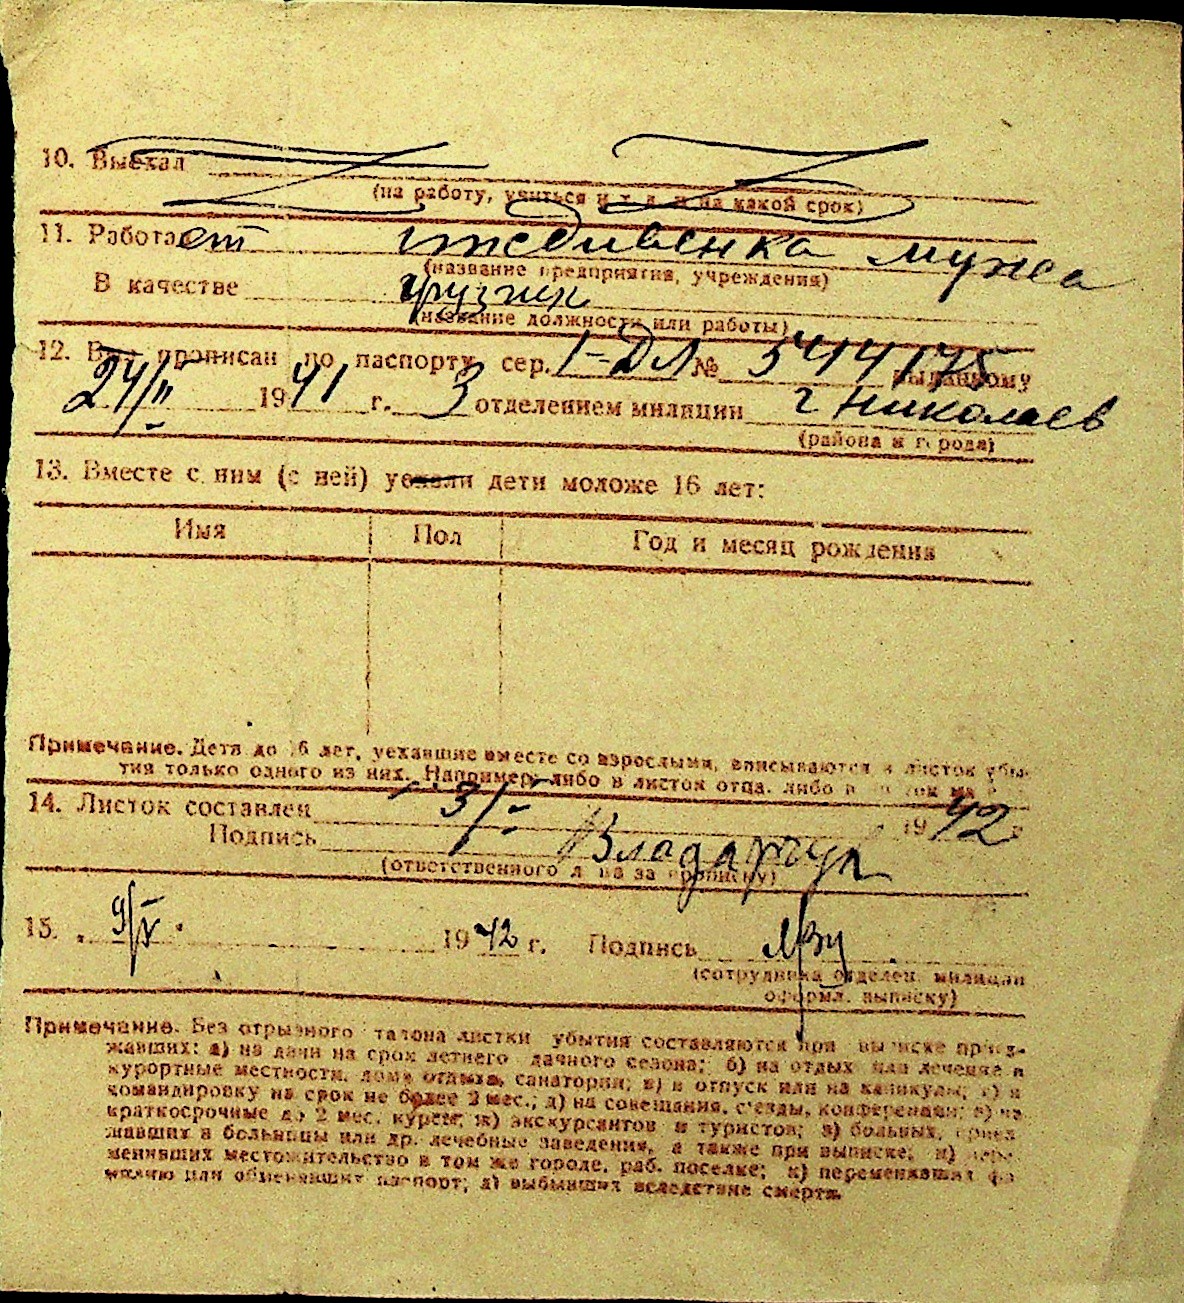 10. Выехал
(на работу, учиться и т. д. и на какой срок)
11. Работает иждивенка мужа
(название предприятия, учреждения)
В качестве грузчик
(название должности или работы)
12. Был прописан по паспорту сер. 1-ДЛ № 544175 выданному
24/II 1941 г. 3 отделением милиции г Николаев
(района и города)
13. Вместе с ним (с ней) уехали дети моложе 16 лет:
Имя Пол Год и месяц рождения
Примечание. Дети до 16 лет, уехавшие вместе со взрослыми, вписываются в листок убы-
тия только одного из них. Например: либо в листок отца, либо в
14. Листок составлен 3/V 1942 г
Подпись
(ответственного лица за прописку)
15. 9/V. 1942 г. Подпись
(сотрудника отделен. милиции
оформл. выписку)
Примечание. Без отрывного талона листки убытия составляются при выписке приез-
жавших: а) на дачи на срок летнего дачного сезона; б) на отдых или лечение в
курортные местности, дома отдыха, санатории; в) в отпуск или на каникулы; г) в
командировку на срок не более 2 мес.; д) на совещания, съезды, конференции; е) на
краткосрочные до 2 мес. курсы; ж) экскурсантов и туристов; з) больных, приез-
жавших в больницы или др. лечебные заведения, а также при выписке; и) пере-
менивших местожительство в том же городе, раб. поселке; к) переменивших фа-
милию или обменявших паспорт; л) выбывших вследствие смерти.